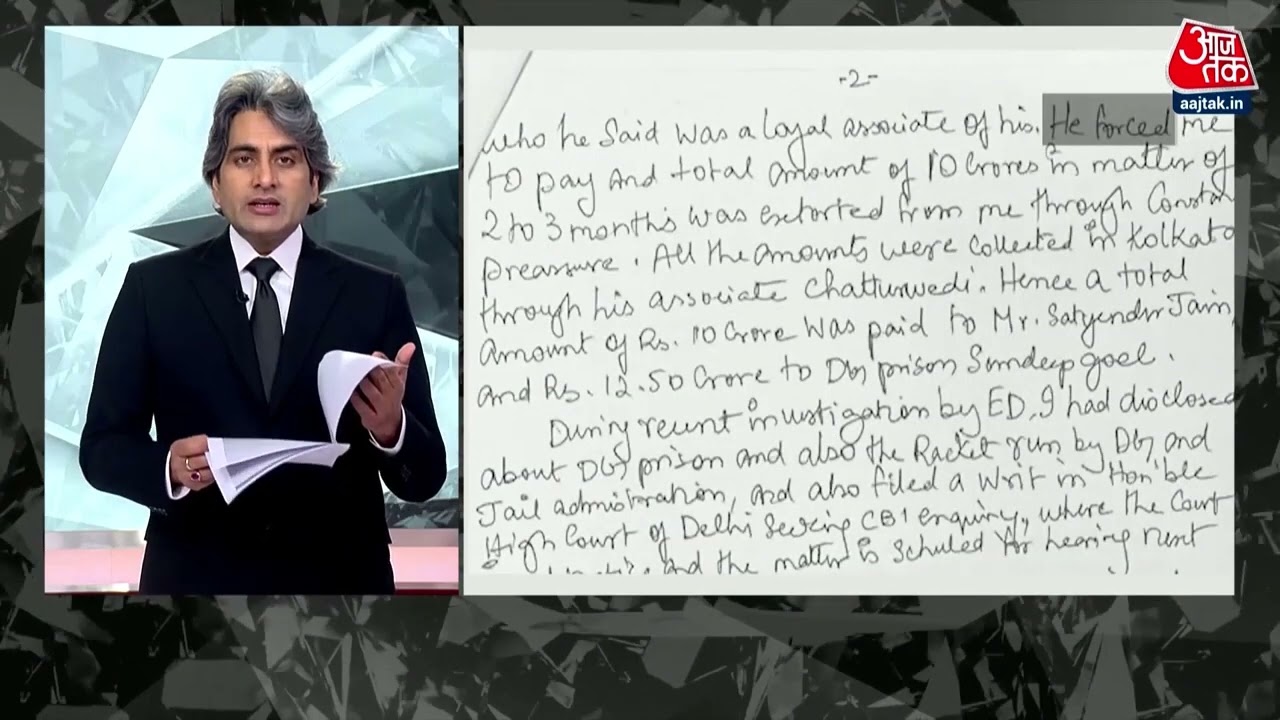 आज
तक
aajtak.in
-2-
who he said was a loyal associate of his. He forced me
to pay and total amount of 10 Crores in matter of
2 to 3 months was extorted from me through Constan
preassure. All the amounts were collected in Kolkata
through his associate Chatturwedi. Hence a total
amount of Rs. 10 Crore was paid to Mr. Satyendr Jain,
and Rs. 12.50 Crore to DG prison Sundeep goel.
During recent investigation by ED, I had disclosed
about DG prison and also the Racket run by DG and
Jail administration, and also filed a writ in Hon'ble
High Court of Delhi seeking CBI enquiry, where the Court
and the matter is schuled for hearing next